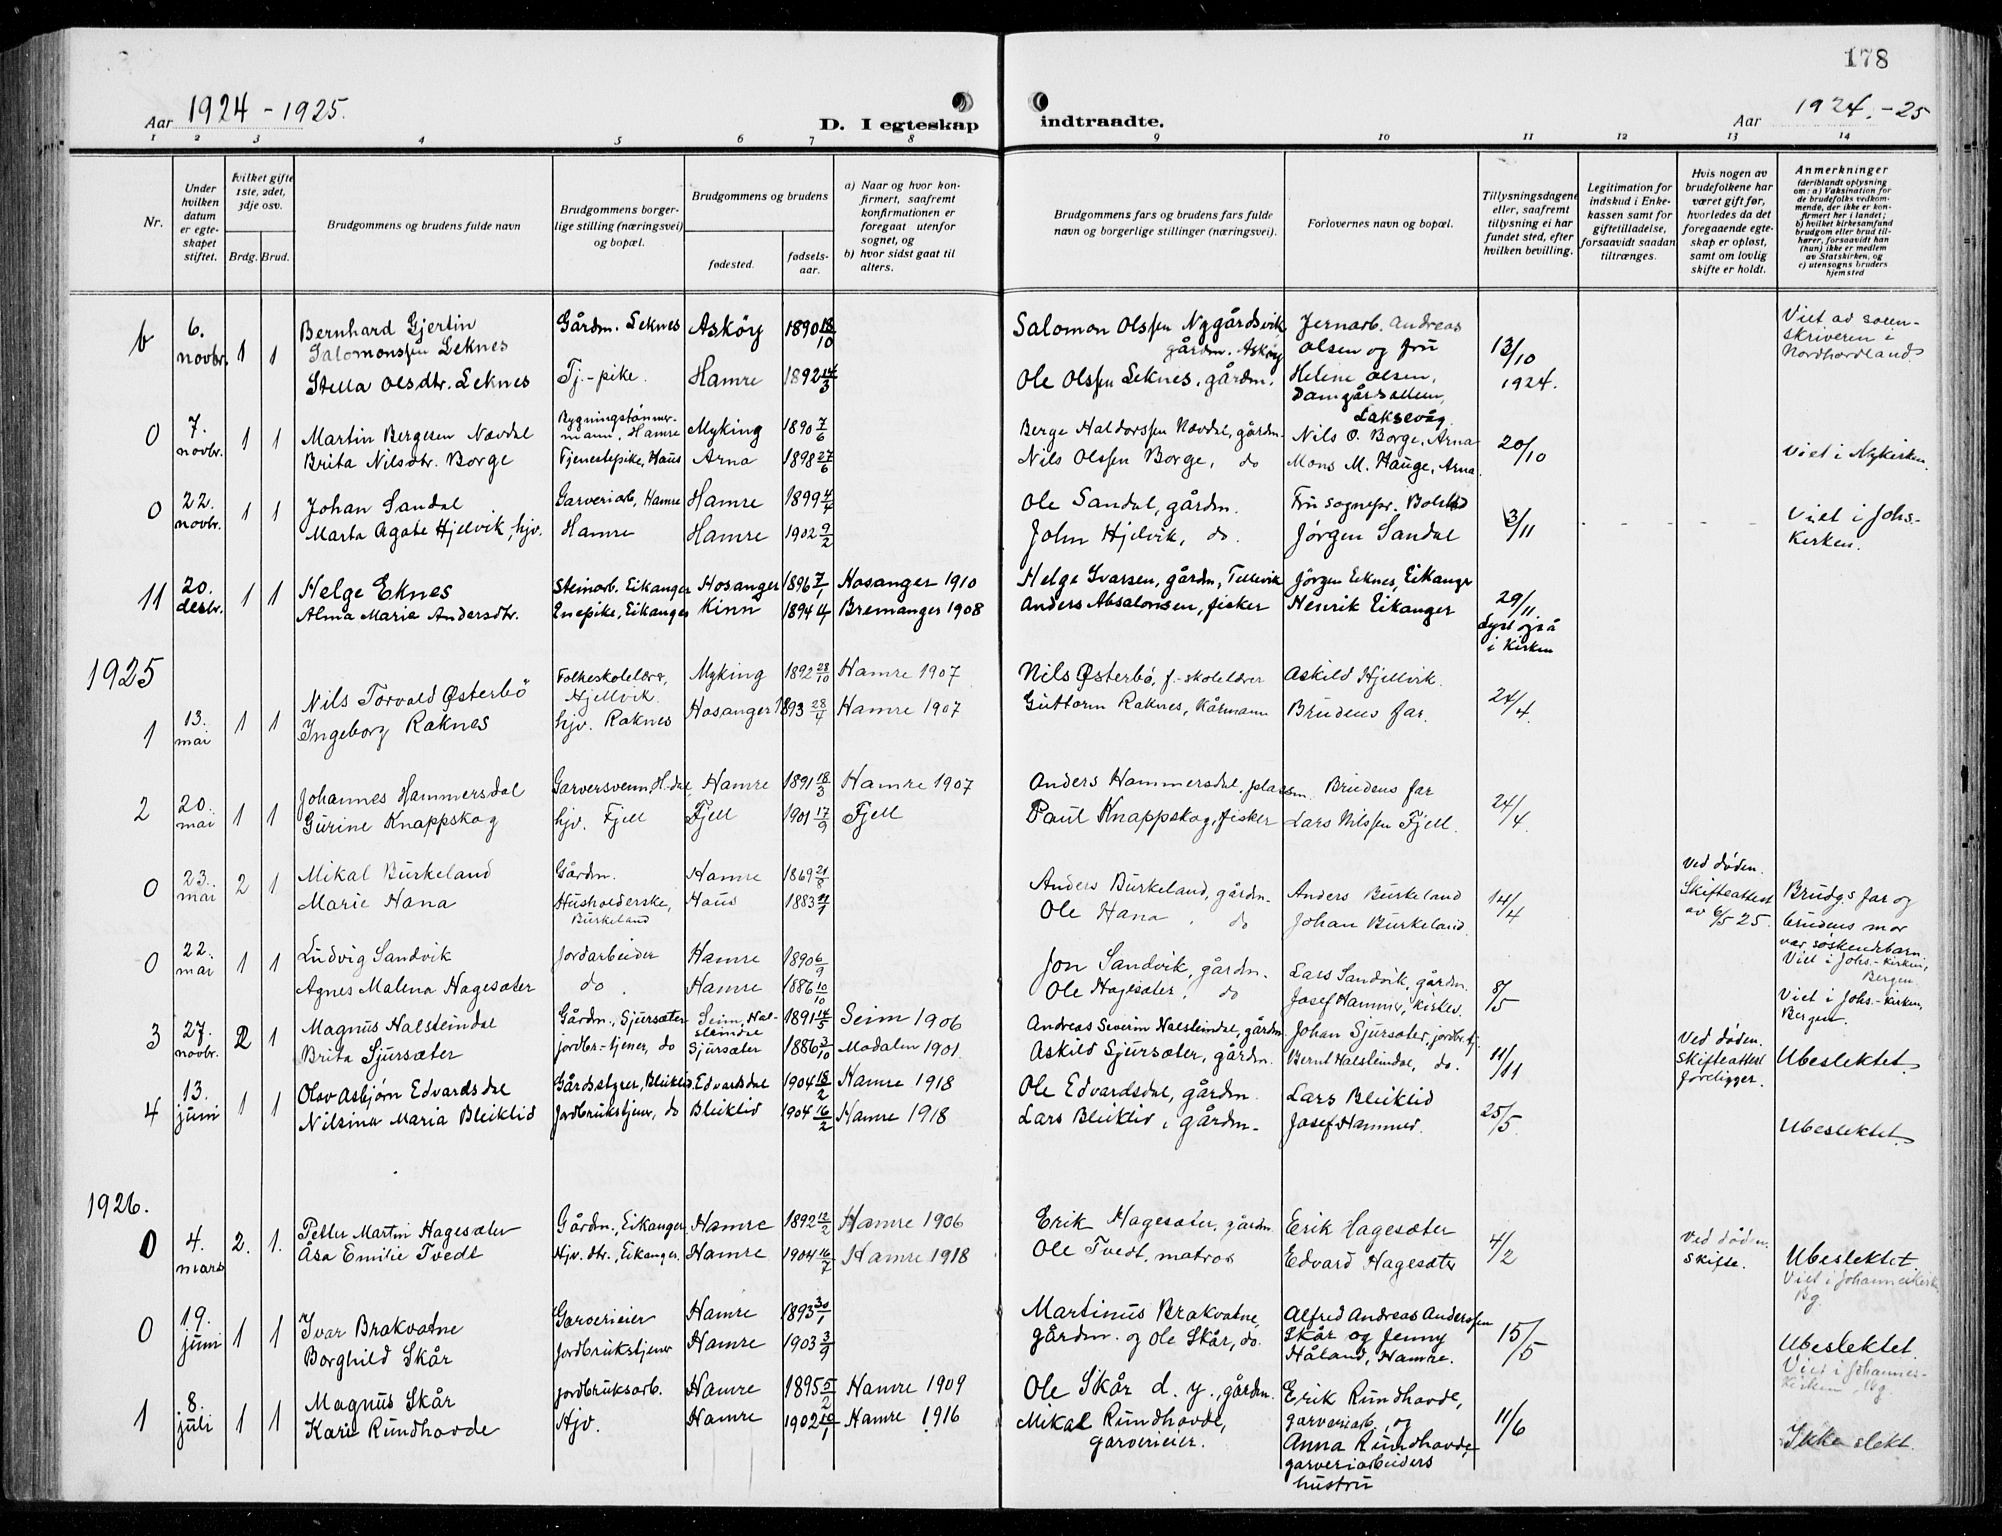 178
Aar 1924 - 1925.
D. Iegteskap indtraadte.
Aar 1924.-25
1 2 3 4 5 6 7 8 9 10 11 12 13 14
Nr.
Under hvilken datum er egteskapet stiftet.
hvilket gifte 1ste, 2det, 3dje osv.
Brdg. Brud.
Brudgommens og brudens fulde navn
Brudgommens borgerlige stilling (næringsvei) og bopæl.
Brudgommens og brudens
fødested.
fødselsaar.
a) Naar og hvor konfirmert, saafremt konfirmationen er foregaat utenfor sognet, og
b) hvor sidst gaat til alters.
Brudgommens fars og brudens fars fulde navn og borgerlige stillinger (næringsvei).
Forlovernes navn og bopæl.
Tillysningsdagene eller, saafremt tillysning ei har fundet sted, efter hvilken bevilling.
Legitimation for indskud i Enkekassen samt for giftetilladelse, forsaavidt saadan tiltrænges.
Hvis nogen av brudefolkene har været gift før, hvorledes da det foregaaende egteskap er opløst, samt om lovlig skifte er holdt.
Anmerkninger
(deriblandt oplysning om: a) Vaksination for de brudefolks vedkommende, der ikke er konfirmert her i landet; b) hvilket kirkesamfund brudgom eller brud tilhører, forsaavidt han (hun) ikke er medlem av Statskirken, og c) utensogns bruders hjemsted
b 6. novbr. 1 1 Bernhard Gjertin Salomonsen Leknes Gårdm. Leknes Askøy 1890 18/10 Salomon Olssen Nygårdsvik, gårdm. Askøy Jernarb. Andreas Olsen og fru 13/10 1924. Viet av sorenskriveren i Nordhordland
Stella Olsdtr. Leknes Tj.-pike. Hamre 1892 14/3 Ole Olssen Leknes, gårdm. Helene Olsen, Damgårsallem, Laksevåg.
0 7. novbr. 1 1 Martin Bergesen Nævdal Bygningstømmermann, Hamre Myking 1890 7/6 Berge Haldorssen Nævdal, gårdm. Nils O. Borge, Arna 20/10 Viet i Nykirken.
Brita Nilsdtr. Borge Tjenestepike, Haus Arna 1898 27/6 Nils Olssen Borge, do Mons M. Hauge, Arna.
0 22. novbr. 1 1 Johan Sandal Garveriarb, Hamre Hamre 1899 4/4 Ole Sandal, gårdm. Fru sognepr. Bolstad 3/11 Viet i Johs.-Kirken.
Marta Agate Hjelvik, hjv. Hamre Hamre 1902 9/2 John Hjelvik, do. Jørgen Sandal
11 20. desbr. 1 1 Helge Eknes Steinarb. Eikanger Hosanger 1896 7/1 Hosanger 1910 Helge Ivarsen, gårdm, Tellevik Jörgen Eknes, Eikanger 29/11 lyst også i Kirken
Alma Marie Andersdtr. Enepike, Eikanger Kinn 1894 4/4 Bremanger 1908 Anders Absalonsen, fisker Henrik Eikanger
1925
1 13. mai 1 1 Nils Torvald Østerbö Folkeskolelærer, Hjellvik Myking 1892 28/10 Hamre 1907 Nils Østerbö, f.-skolelærer Askild Hjellvik. 24/4.
Ingeborg Raknes hjv. Raknes Hosanger 1893 28/4 Hamre 1907 Guttorm Raknes, Kårmann Brudens far.
2 20. mai 1 1 Johannes Hammersdal Garversvenn, H.-dal Hamre 1891 18/3 Hamre 1907 Anders Hammersdal, plassm. Brudens far 24/4.
Gurine Knappskog hjv. Fjell Fjell 1901 17/9 Fjell Paul Knappskog, fisker Lars Nilssen Fjell.
0 23. mai 2 1 Mikal Burkeland Gårdm. Hamre 1869 21/8 Anders Burkeland, gårdm. Anders Burkeland 14/4 Ved döden. Skifteattest av 6/5 25. Brudgs far og brudens mor var söskendebarn. Viet i Johs.-kirken, Bergen.
Marie Hana Husholderske, Burkeland Haus 1883 Ole Hana, do Johan Burkeland.
0 22. mai 1 1 Ludvig Sandvik Jordarbeider Hamre 1890 6/9 Jon Sandvik, gårdm. Lars Sandvik, gårdm. 8/5 Viet i Johs.-Kirken, Bergen.
Agnes Malena Hagesæter do. Hamre 1886 10/10 Ole Hagesæter, do Josef Hammer, kirkes.
3 27. novbr. 2 1 Magnus Halsteindal Gårdm., Sjursæter Seim, Halsteindal 1891 14/5 Seim 1906 Andreas Severin Halsteindal, gårdm. Johan Sjursæter, jordbr.tj. 11/11 Ved döden. Skifteattest foreligger. Ubeslektet
Brita Sjursæter jordbr.-tjener, do Sjursæter 1886 3/10 Modalen 1901. Askild Sjursæter, gårdm. Bernt Halsteindal, do.
4 13. juni 1 1 Olav Asbjørn Edvardsdal Gårdsstyrer, Bleiklid Edvardsdal 1904 18/2 Hamre 1918 Ole Edvardsdal, gårdm. Lars Bleiklid 25/5. Ubeslektet
Nilsina Maria Bleiklid Jordbrukstjener, do Bleiklid 1904 16/2 Hamre 1918 Lars Bleiklid, gårdm. Josef Hammer.
1926.
0 4. mars 2. 1. Petter Martin Hagesæter Gårdm., Eikanger Hamre 1892 12/2 Hamre 1906 Erik Hagesæter, gårdm Erik Hagesæter 4/2 Ved döden. Skifte. Ubeslektet. Viet i Johanneskirk. Bg.
Åsa Emilie Tvedt Hjv. dtr., Eikanger. Hamre 1904 16/7 Hamre 1918 Ole Tvedt, matros Edvard Hagesæter
0 19. juni 1 1 Ivar Brakvatne Garverieier Hamre 1893 30/1 Martinus Brakvatne, gårdm. og Ole Skår, do. Alfred Andreas Anderssen Skår og Jenny Håland, Hamre. 15/5 Ubeslektet. Viet i Johanneskirken, Bg.
Borghild Skår Jordbrukstjener Hamre 1903 3/9
1 8. juli 1 1 Magnus Skår jordbruksarb. Hamre 1895 5/2 Hamre 1909 Ole Skår d. y., gårdm. Erik Rundhovde, garveriarb, og Anna Rundhovde, garveriarbeiders hustru 11/6 Ikke slekt.
Kari Rundhovde Hjv. Hamre 1902 10/1 Hamre 1916 Mikal Rundhovde, garverieier.